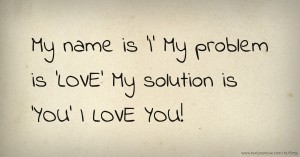 My name is 'I' My problem
is 'LOVE' My solution is
'YOU' I LOVE YOU!